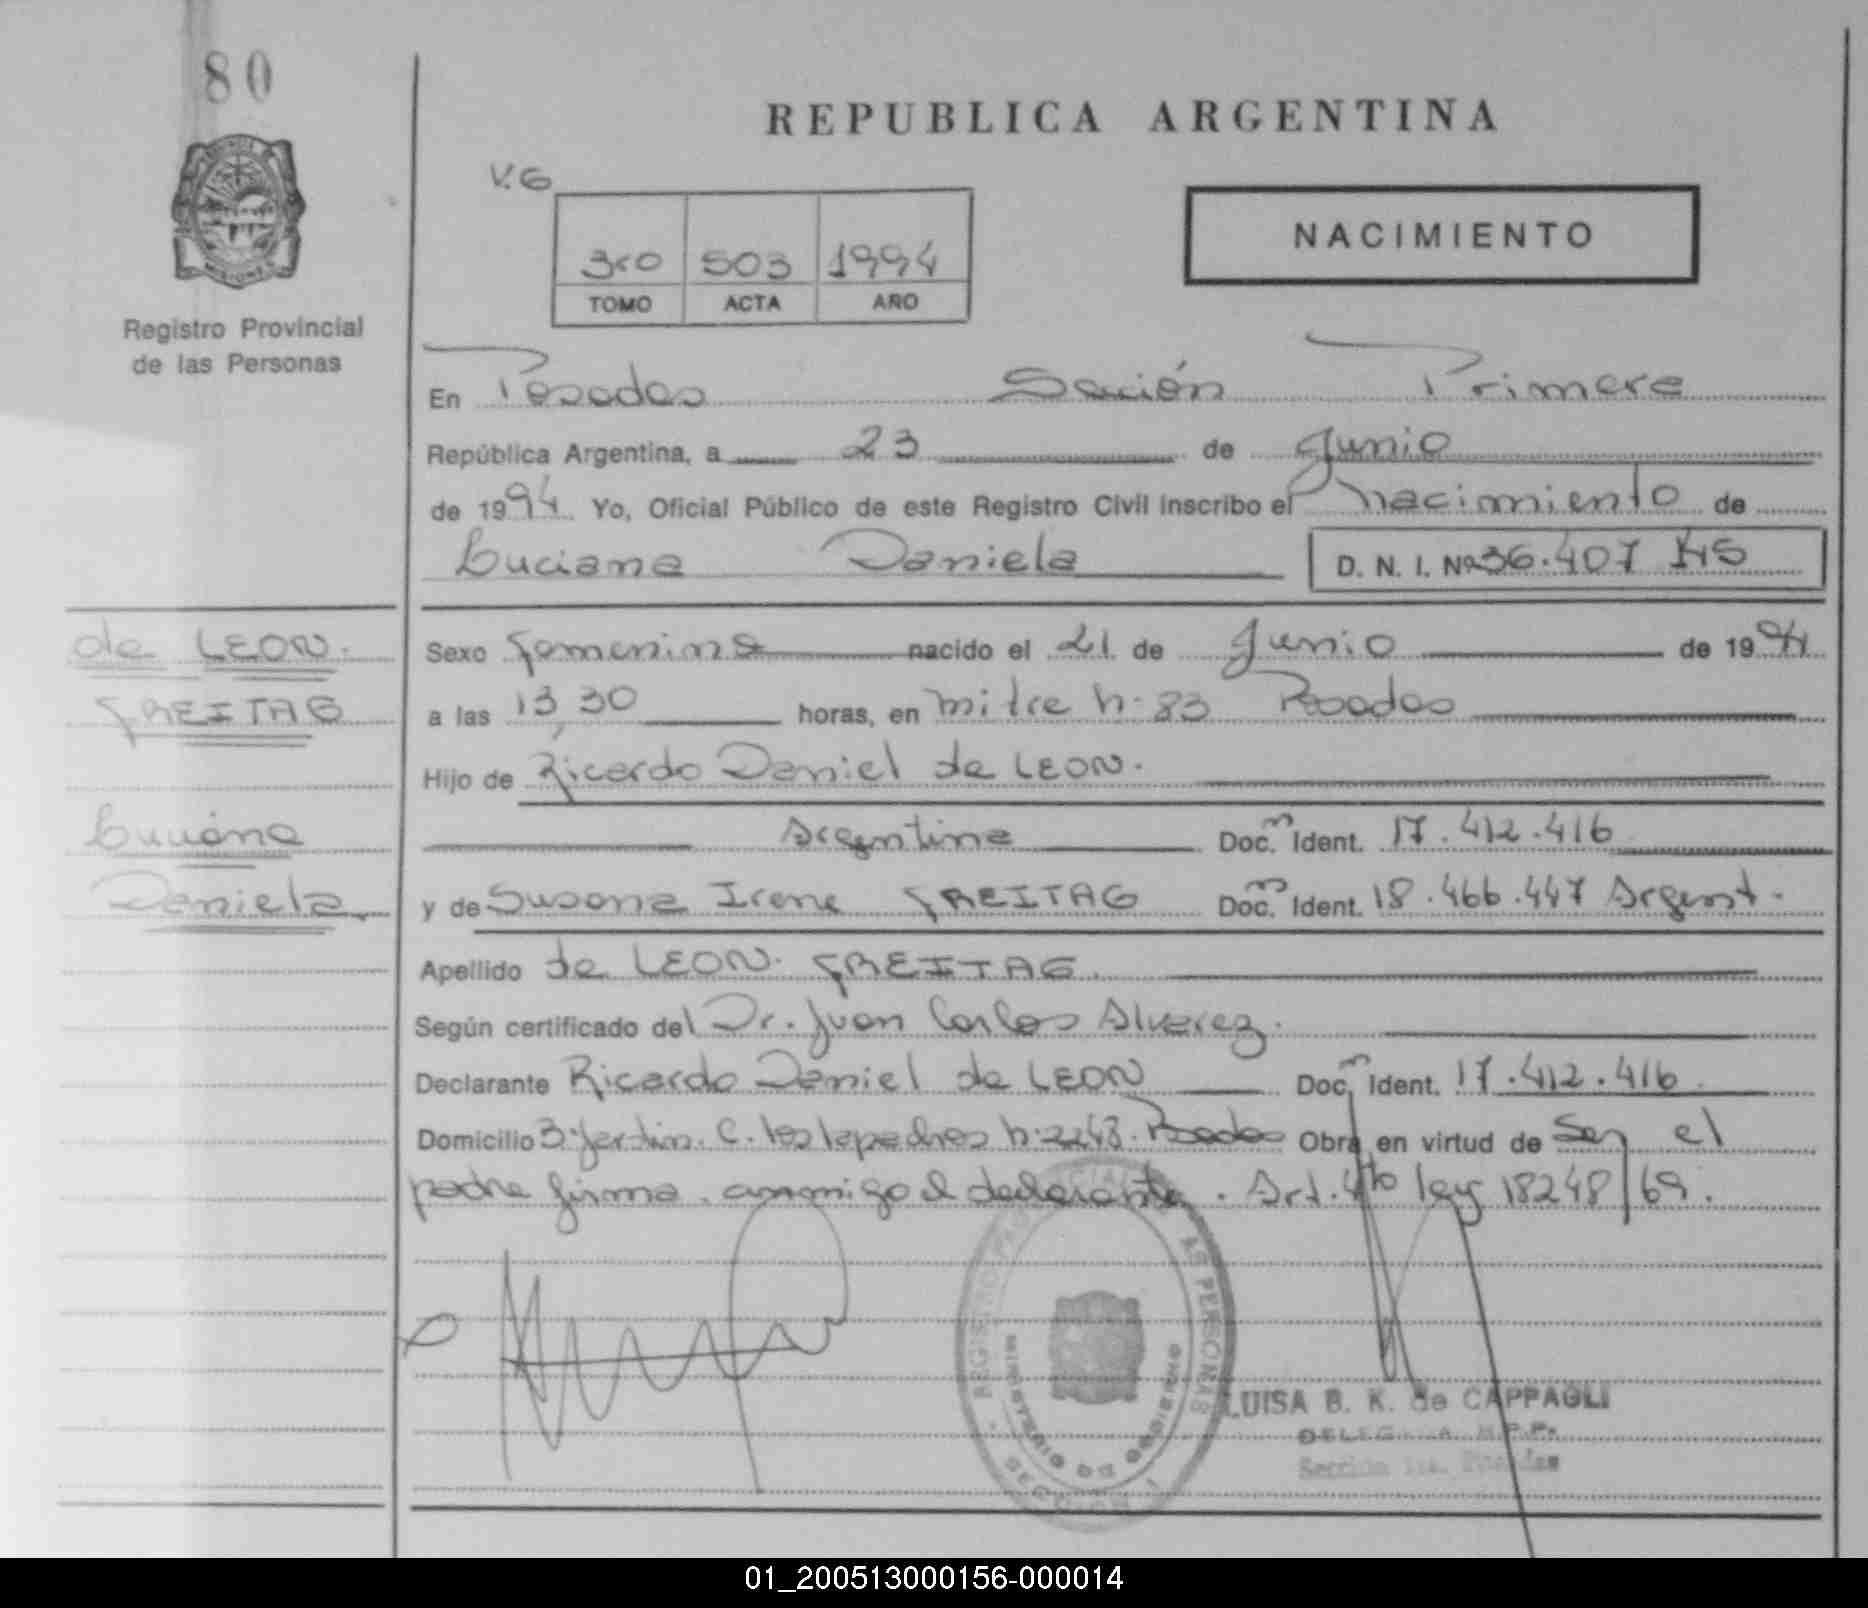 80
REPUBLICA ARGENTINA
V.G
3ro 503 1994
TOMO ACTA AÑO
NACIMIENTO
Registro Provincial
de las Personas
En Posadas Sección Primera
República Argentina, a 23 de Junio
de 1994 Yo, Oficial Público de este Registro Civil inscribo el nacimiento de
Luciana Daniela D. N. I. Nº 36.407
de LEON.
FREITAG
Luciana
Daniela
Sexo femenino nacido el 21 de Junio de 1994
a las 13,30 horas, en mitre n: 83 Posadas
Hijo de Ricardo Daniel de LEON.
Argentina Doc. Ident. 17.412.416
y de Susana Irene FREITAG Doc. Ident. 18.466.447 Argent.
Apellido de LEON. FREITAG
Según certificado del Dr. Juan Carlos Alvarez.
Declarante Ricardo Daniel de LEON Doc. Ident. 17.412.416
Domicilio B: Jardin. C. los lapachos n: 2243. Posadas Obra en virtud de Ser el
padre firma. conmigo el declarante. Art. 4to ley 18248/69.
REGISTRO PROVINCIAL DE LAS PERSONAS
MINISTERIO DE GOBIERNO
SECCION 1
LUISA B. K. de CAPPAGLI
DELEGADA R.P.P.
Sección 1ra. Posadas
01_200513000156-000014